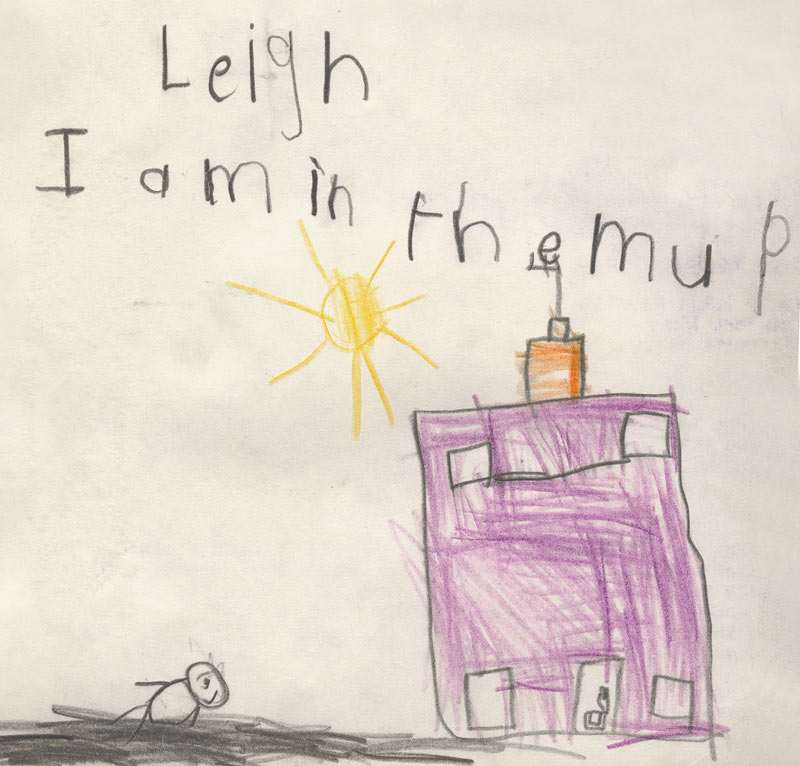 Leigh
I am in the mup